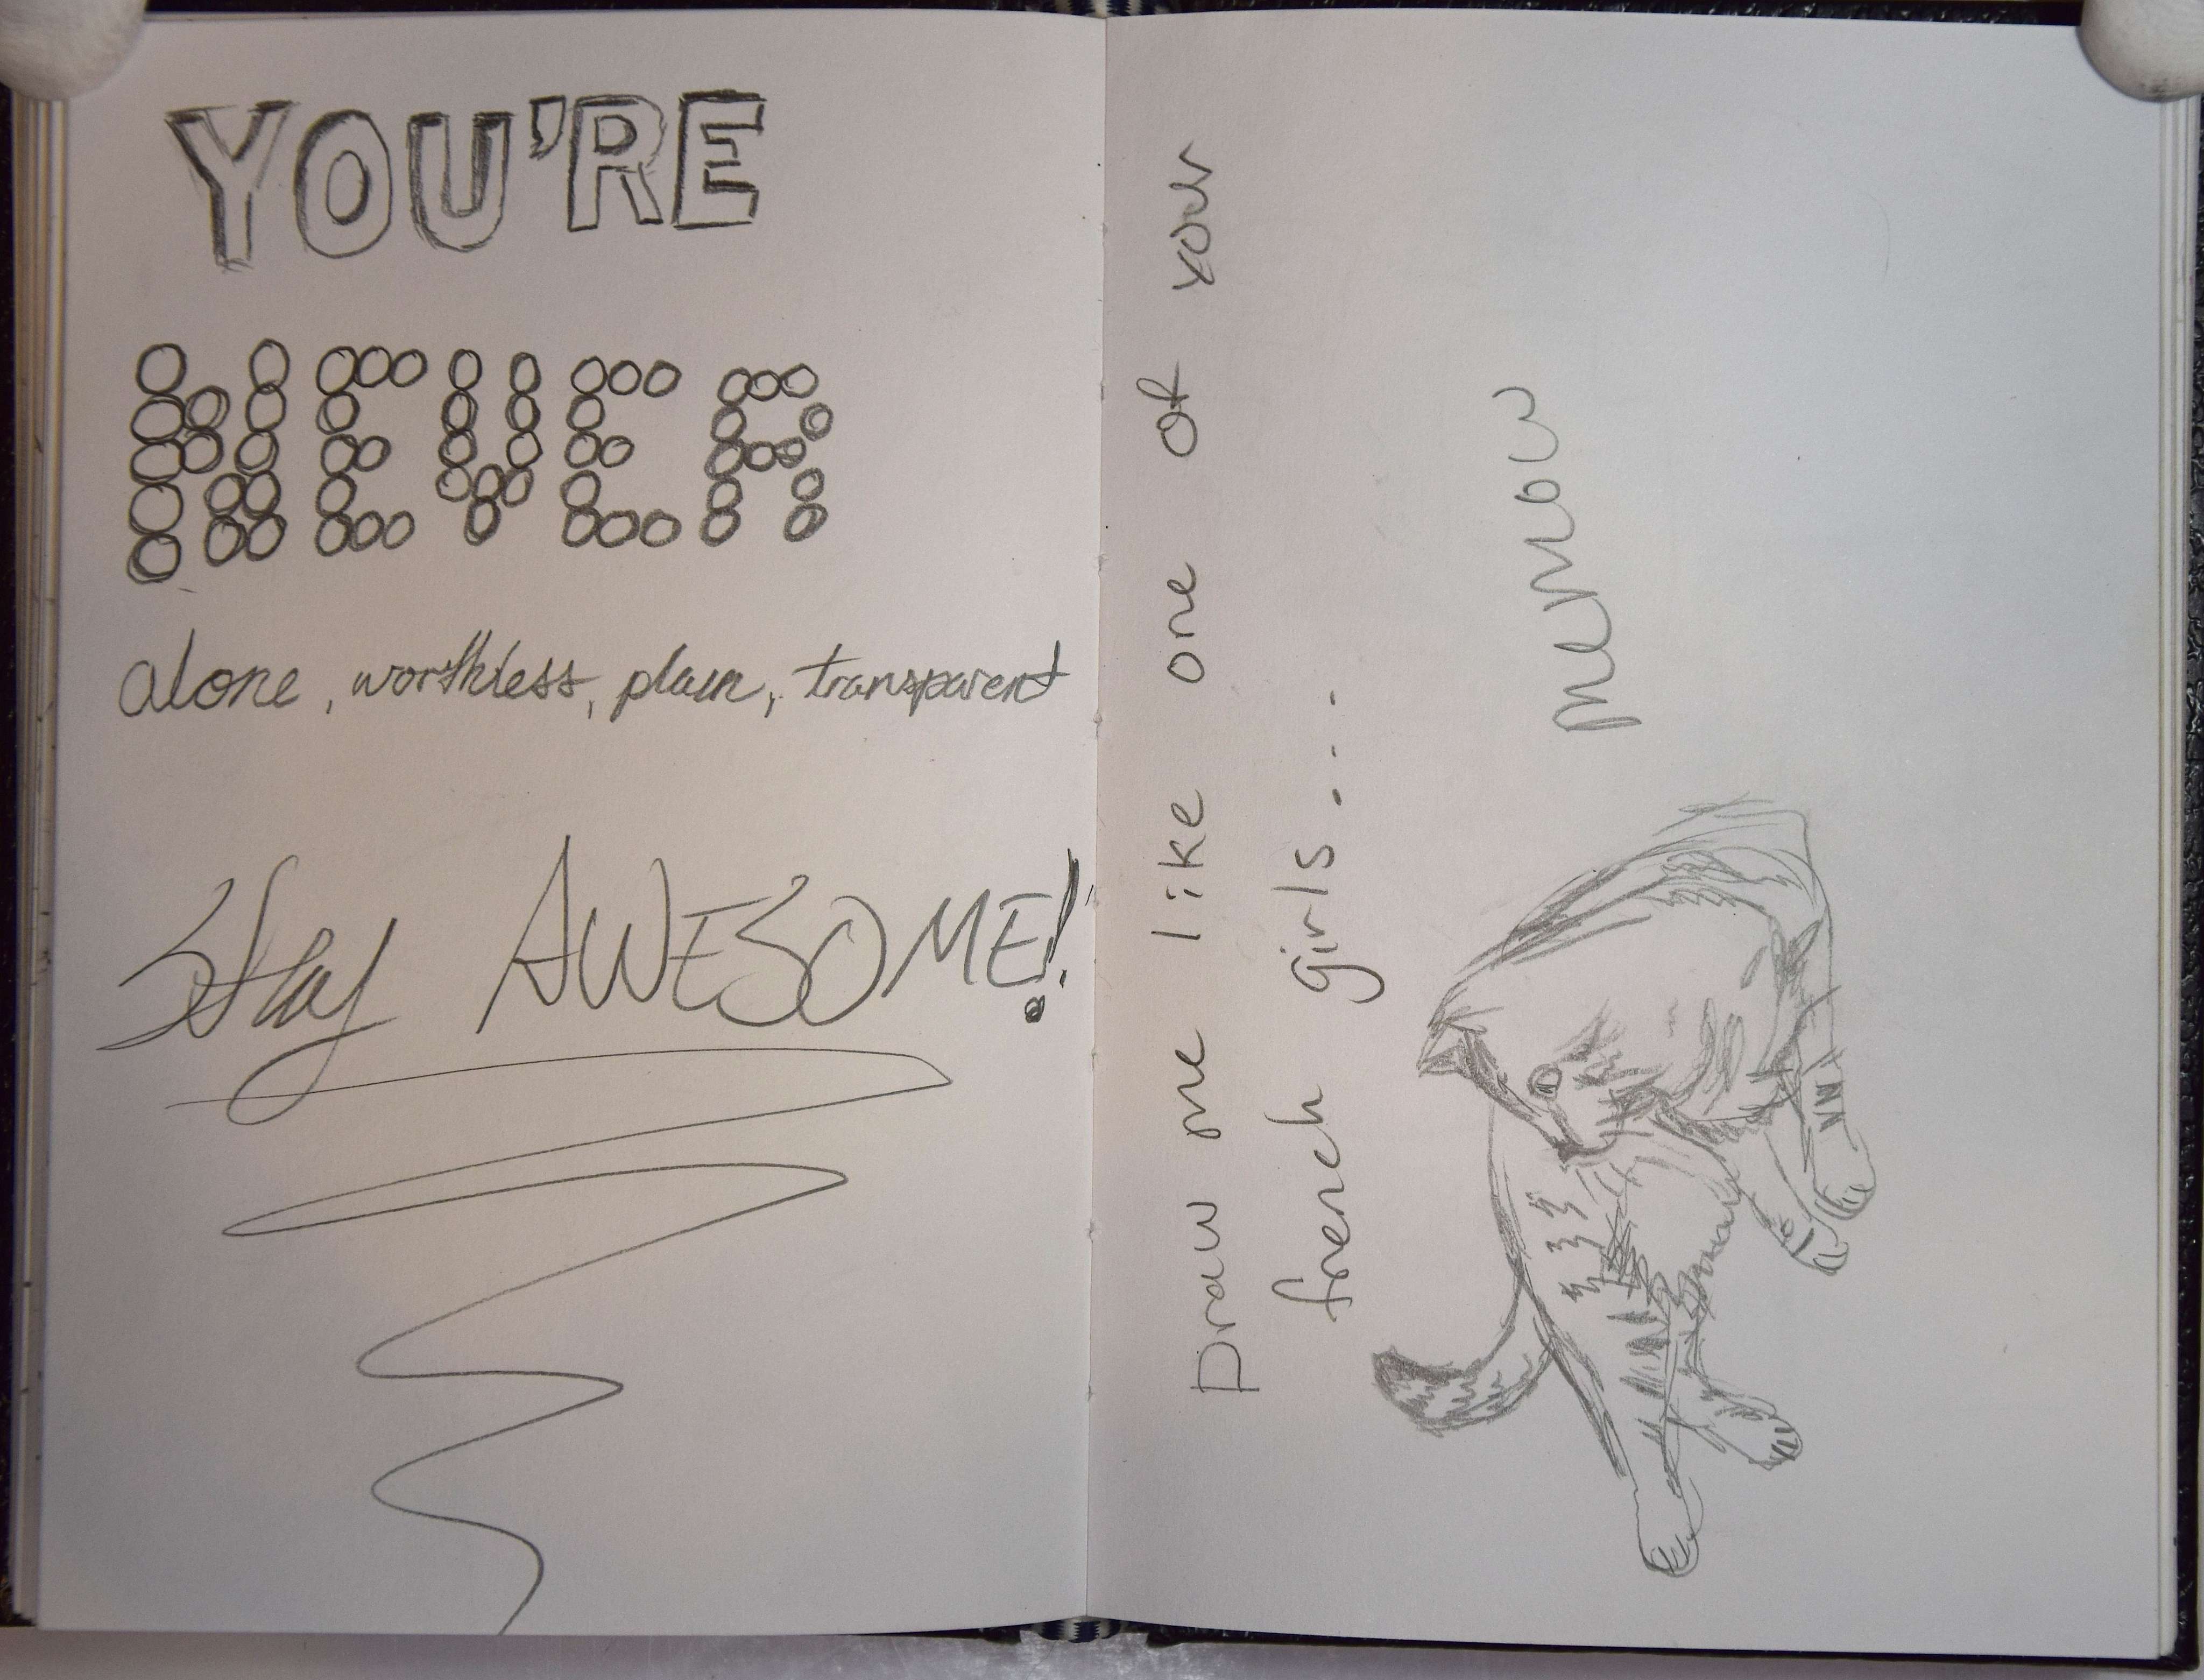 YOU'RE
NEVER
alone, worthless, plain, transparent
Stay AWESOME!
Draw me like one of your
french girls...